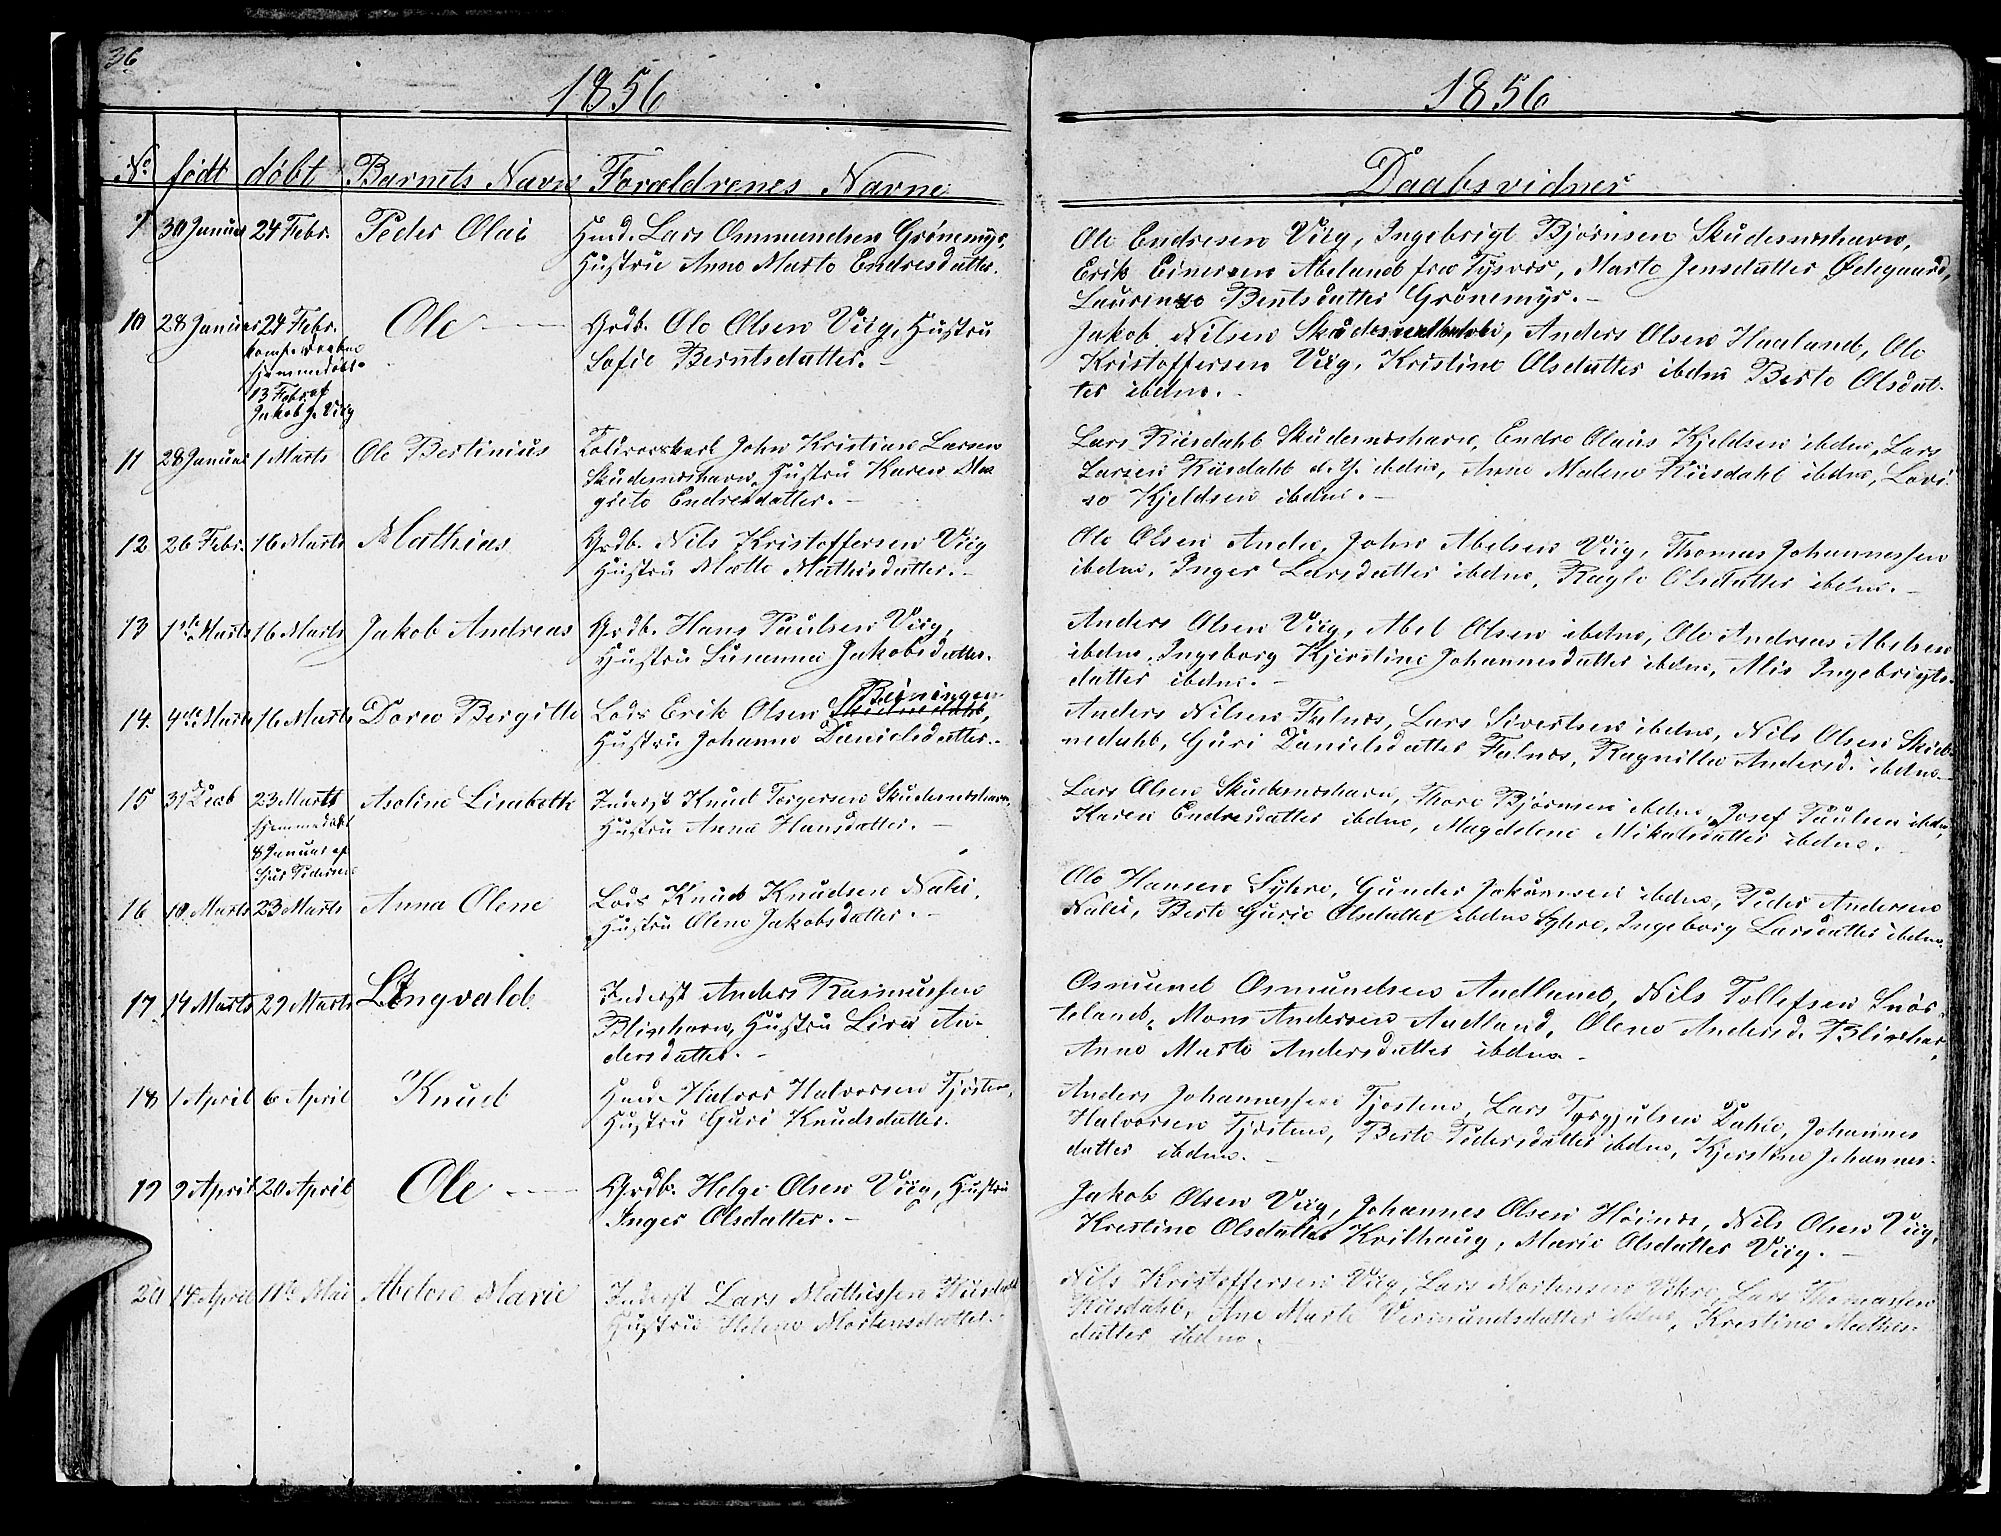 36
1856
No. født døbt Barnets Navn Forældrenes Navne
9 30 Januar 24 Febr. Peder Olai Husd. Lars Ommundsen Grønemyr,
Hustru Anne Marte Endresdatter.
10 28 Januar 24 Febr. Ole Grdb. Ole Olsen Viig, Hustru
Sofie Berntsdatter.
hjemmedøbt
13 Febr af
Jakob J. Viig
11 28 Januar 1 Marts Ole Bertinius John Kristian Larsen
Skudesneshavn, Hustru Karen Mar
grete Endresdatter.
12 26 Febr. 16 Marts Mathias Grdb. Nils Kristoffersen Viig
Hustru Mette Mathisdatter.
13 1ste Marts 16 Marts Jakob Andreas Grdb. Hans Paulsen Viig,
Hustru Susanna Jakobsdatter.
14. 4de Marts 16 Marts Dorea Bergitte Lods Erik Olsen Beiningen
Hustru Johanne Danielsdatter.
15 31 Decb 23 Marts Aseline Lisabeth Inderst Knud Torgersen Skudesneshavn,
Hustru Anna Hansdatter.
hjemmedøbt
8 Januar af
Pedersen
16 10 Marts 23 Marts Anna Olene Lods Knud Knudsen Nalei,
Hustru Olene Jakobsdatter.
17 14 Marts 29 Marts Lengvald Inderst Anders Rasmussen
Blixhavn, Hustru Lisa An-
dersdatter.
18 1 April 6 April Knud Husd. Halvor Halvorsen Tjøsten,
Hustru Guri Knudsdatter.
19 9 April 20 April Ole Grdb. Helge Olsen Viig, Hustru
Inger Olsdatter.
20 14 April 11te Mai Abelone Marie Inderst Lars Mathissen
Hustru Helene Mortensdatter.
1856
Daabsvidner
Ole Endresen Viig, Ingebrigt Bjørnsen Skudesneshavn,
Erik Einersen Abeland fra Tysvær, Marte Jensdatter Ødegaard,
Laurenze Bentsdatter Grønemyr.
Jakob Nilsen, Anders Olsen Haaland, Ole
Kristoffersen Viig, Kristine Olsdatter ibdm Berte Olsdat-
ter ibdm.
Lars Riisdahl Skudesneshavn, Endre Olaus Kjeldsen ibdm, Lars
Larsen Riisdahl d. Y. ibdm, Anne Malene Riisdahl ibdm, Lovi-
se Kjeldsen ibdm.
Ole Olsen Ande, John Abelsen Viig, Thomas Johannessen
ibdm, Inger Larsdatter ibdm, Ragle Olsdatter ibdm.
Anders Olsen Viig, Abel Olsen ibdm, Ole Andreas Abelsen
ibdm, Ingeborg Kjerstine Johannesdatter ibdm, Alis Ingebrigts-
datter ibdm.
Anders Nilsen Falnes, Lars Sivertsen ibdm, Nils Olsen Skieb-
nedahl, Guri Danielsdatter Falnes, Ragnille Andersd. ibdm
Lars Olsen Skudesneshavn, Thore Bjørnsen ibdm, Josef Paulsen ibdm,
Karen Endresdatter ibdm, Magdelene Mikalsdatter ibdm.
Ole Hansen Syhre, Gunder Jakobsen ibdm, Peder Andersen
Nalei, Berte Gurie Olsdatter Syhre, Ingeborg Larsdatter ibdm
Osmund Osmundsen Aadland, Nils Tollefsen Snørte-
land, Mons Andersen Aadland, Olene Andersd. Blixhav,
Anne Marte Andersdatter ibdm
Anders Johannessen Tjøsten, Lars Dahle, Johannes
Halvorsen Tjøsten, Berte Pedersdatter ibdm, Kjerstine Johannes-
datter ibdm.
Jakob Olsen Viig, Johannes Olsen Høines, Nils Olsen Viig,
Krestine Olsdatter Kvilhaug, Marie Olsdatter Viig.
Nils Kristoffersen Viig, Lars Mortensen Vikre, Lars Thomassen
Riisdahl, Ane Marte Vermundsdatter ibdm, Krestine Mathis-
datter ibdm.